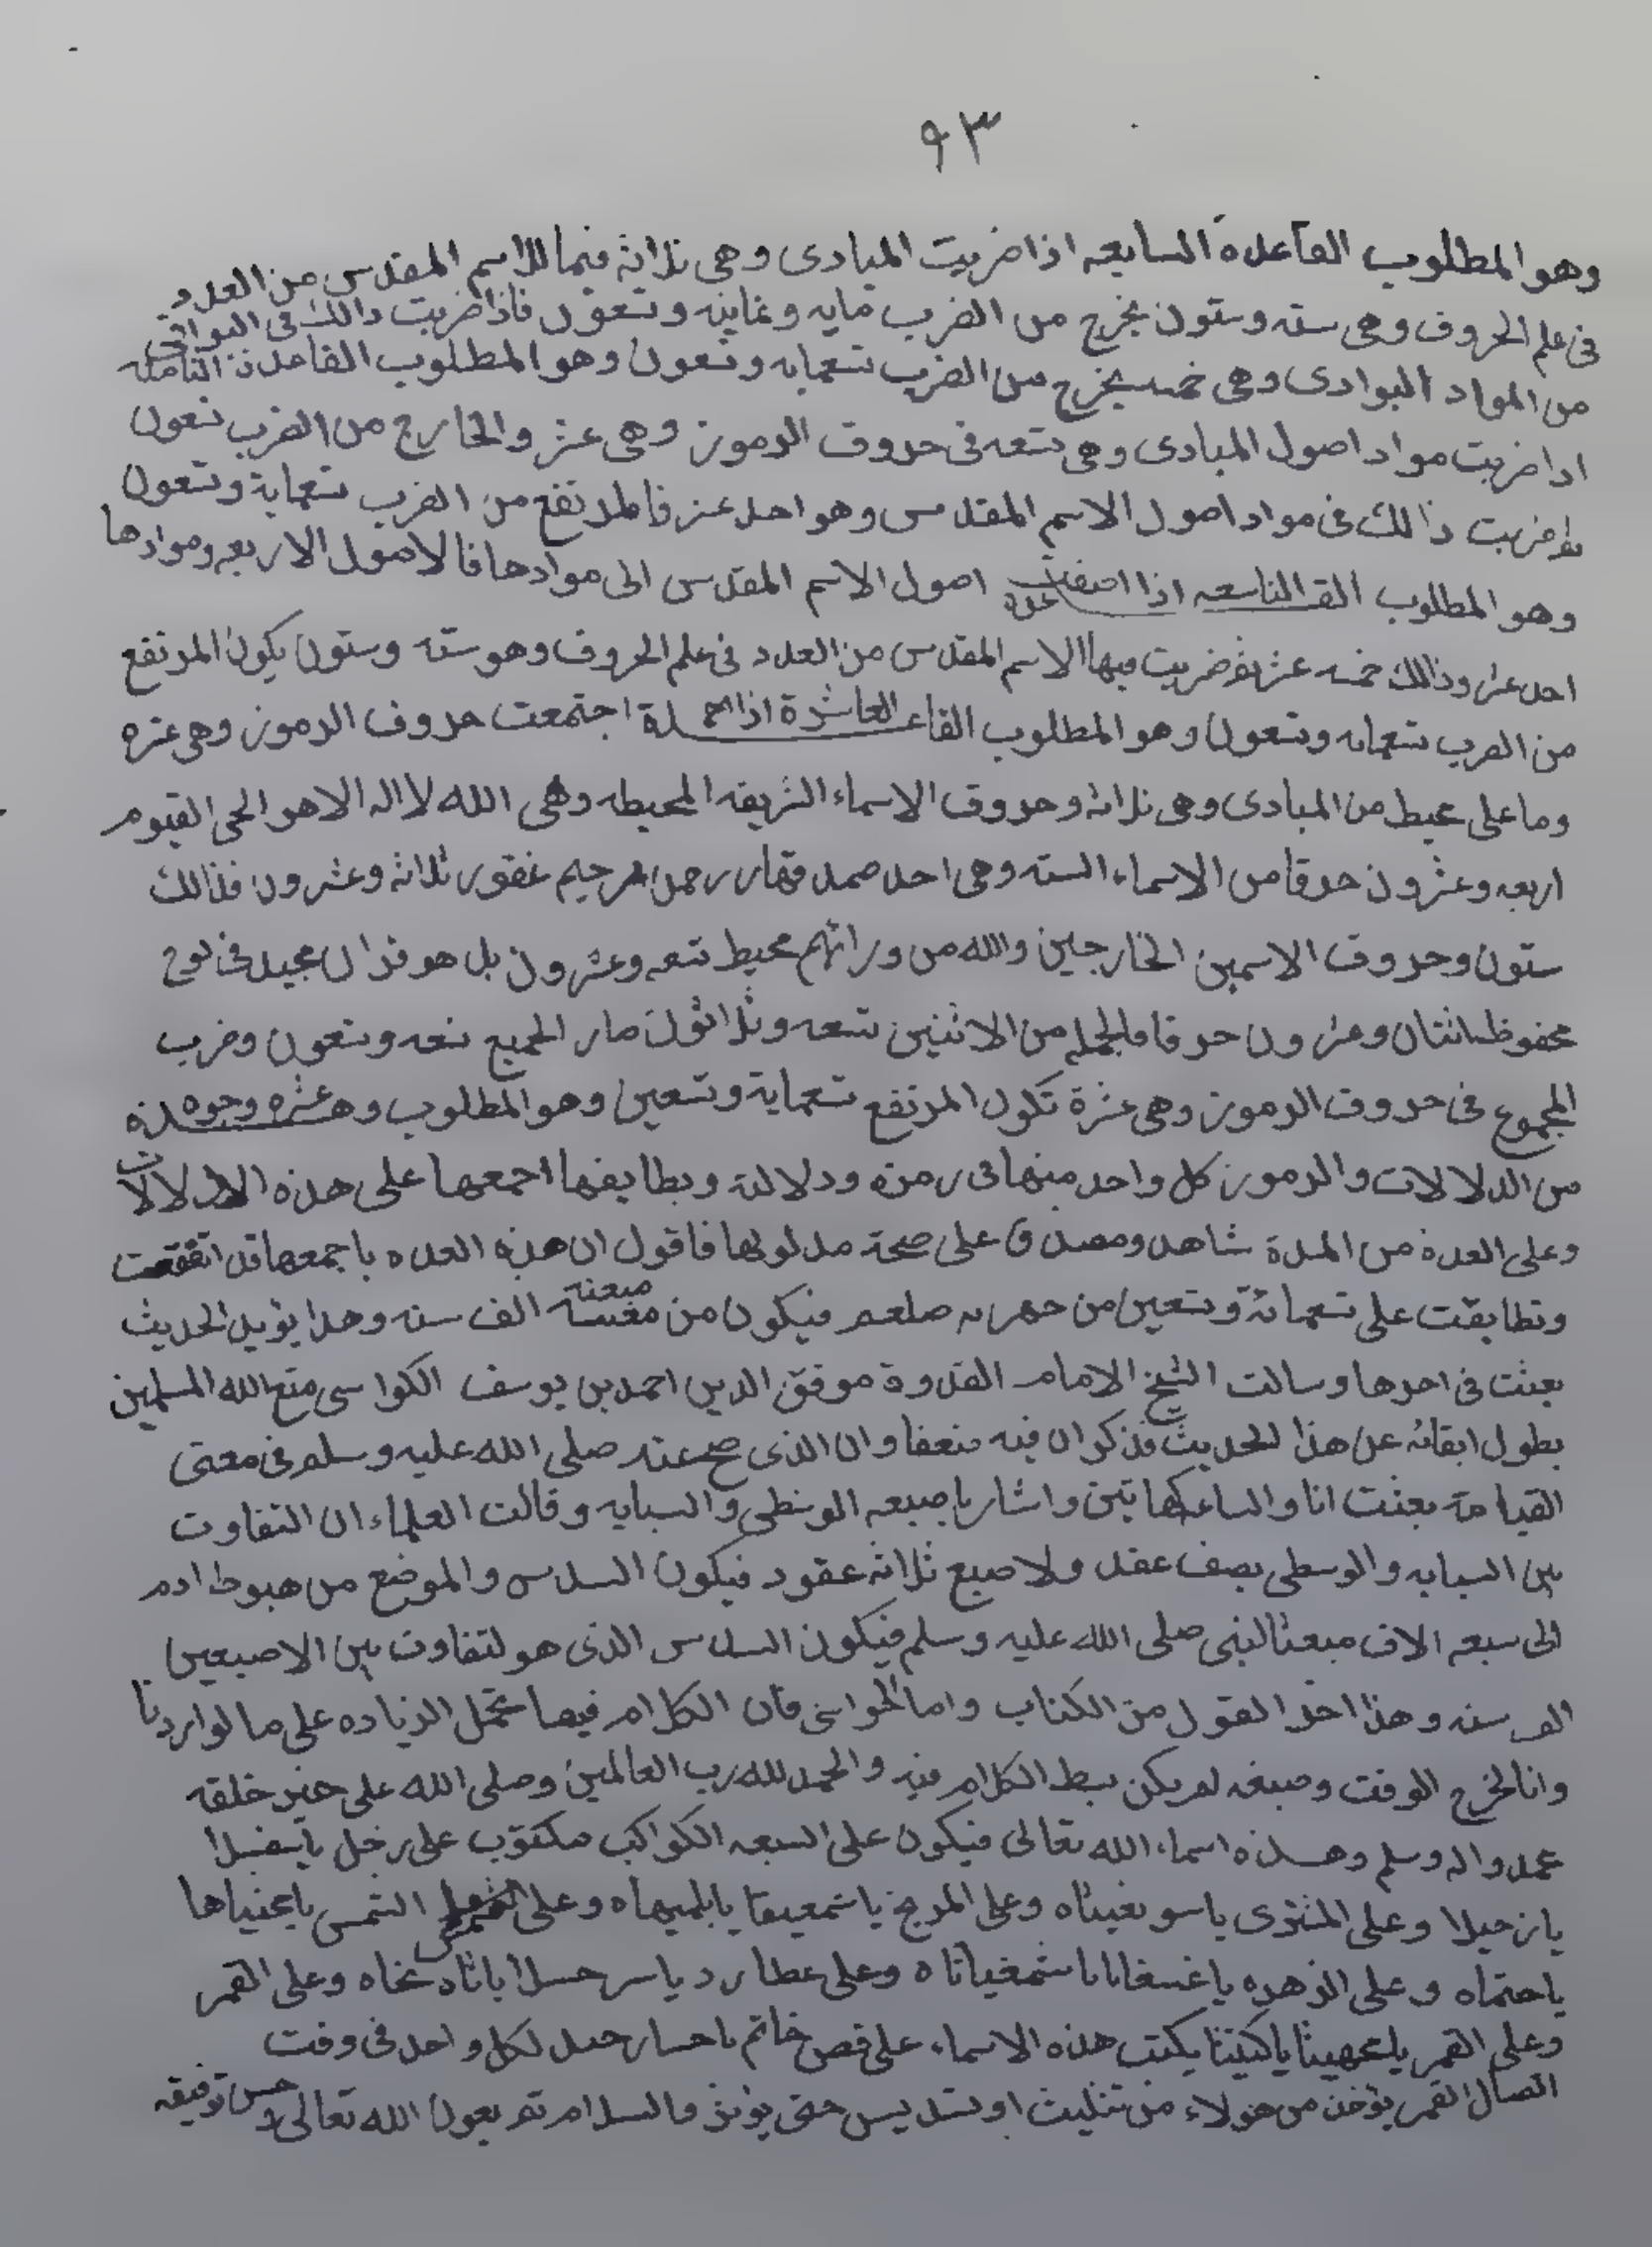 ٩٣
وهو المطلوب القاعدة السابعه اذا ضربت المبادى وهى ثلاثة فيما للاسم المقدس من العدد
فى علم الحروف وهى سته وستون يخرج من الضرب مايه وثمانيه وتسعون فاذا ضربت ذالك فى البواقى
من المواد البوادى وهى خمسه يخرج من الضرب تسعمايه وتسعون وهو المطلوب القاعدة الثامنه
اذا ضربت مواد اصول المبادى وهى تسعه فى حروف الرموز وهى عشر والخارج من الضرب تسعون
ضربت ذالك فى مواد اصول الاسم المقدس وهو احد عشر فالمرتفع من الضرب تسعماية وتسعون
وهو المطلوب القاعدة التاسعه اذا اضفت اصول الاسم المقدس الى موادها فالاصول الاربعه وموادها
احد عشر وذالك خمسه عشر ضربت فيها الاسم المقدس من العدد فى علم الحروف وهو سته وستون يكون المرتفع
من الضرب تسعمايه وتسعون وهو المطلوب القاعدة العاشرة اذا اجتمعت حروف الرموز وهى عشره
وما على محيط من المبادى وهى ثلاثة وحروف الاسماء الشريفه المحيطه وهى الله لا اله الا هو الحى القيوم
اربعه وعشرون حرفا من الاسماء السته وهى احد صمد قهار رحمن رحيم غفور ثلاثه وعشرون فذالك
ستون وحروف الاسمين الخارجين والله من ورائهم محيط تسعه وعشرون بل هو قرآن مجيد فى لوح
محفوظ اثنتان وعشرون حرفا فالجمله من الاثنين تسعه وثلاثون صار الجميع تسعه وتسعون وضرب
المجموع فى حروف الرموز وهى عشرة تكون المرتفع تسعماية وتسعين وهو المطلوب وهذه عشره وجوه
من الدلالات والرموز كل واحد منها فى رمزه ودلالته وبطايفها اجمعها على هذه الدلالات
وعلى العدة من المدة شاهد ومصدق على صحة مدلولها فاقول ان هذه العده باجمعها قد اتفقت
وتطابقت على تسعمائة وتسعين من هجرته صلعم فيكون من مبعثه الف سنه وهذا يؤيد الحديث
بعثت فى اخرها وسالت الشيخ الامام القدوة موفق الدين احمد بن يوسف الكواسى متع الله المسلمين
بطول ابقائه عن هذا الحديث فذكر ان فيه ضعفا وان الذى صح عنه صلى الله عليه وسلم فى معنى
القيامة بعثت انا والساعة كهاتين واشار باصبعه الوسطى والسبابه وقالت العلماء ان التفاوت
بين السبابه والوسطى نصف عقد ولاصبع ثلاثه عقود فيكون السدس والموضع من هبوط ادم
الى سبعه الاف مبعث النبى صلى الله عليه وسلم فيكون السدس الذى هو لتفاوت بين الاصبعين
الف سنه وهذا اخر القول من الكتاب واما الحواشى فان الكلام فيها يحتمل الزياده على ما لو اردنا
وانا لخرج الوقت وضيقه لم يكن بسط الكلام فيه والحمد لله رب العالمين وصلى الله على خير خلقه
محمد واله وسلم وهذه اسماء الله تعالى فيكون على السبعه الكواكب مكتوب على زحل
وعلى المشترى وعلى المريخ وعلى الشمس
وعلى الزهره وعلى عطارد وعلى القمر
وعلى القمر يكتب هذه الاسماء على فص خاتم لكل واحد فى وقت
اتصال القمر يؤخذ من هؤلاء من تثليث او تسديس حتى يؤثر والسلام تم بعون الله تعالى وحسن توفيقه